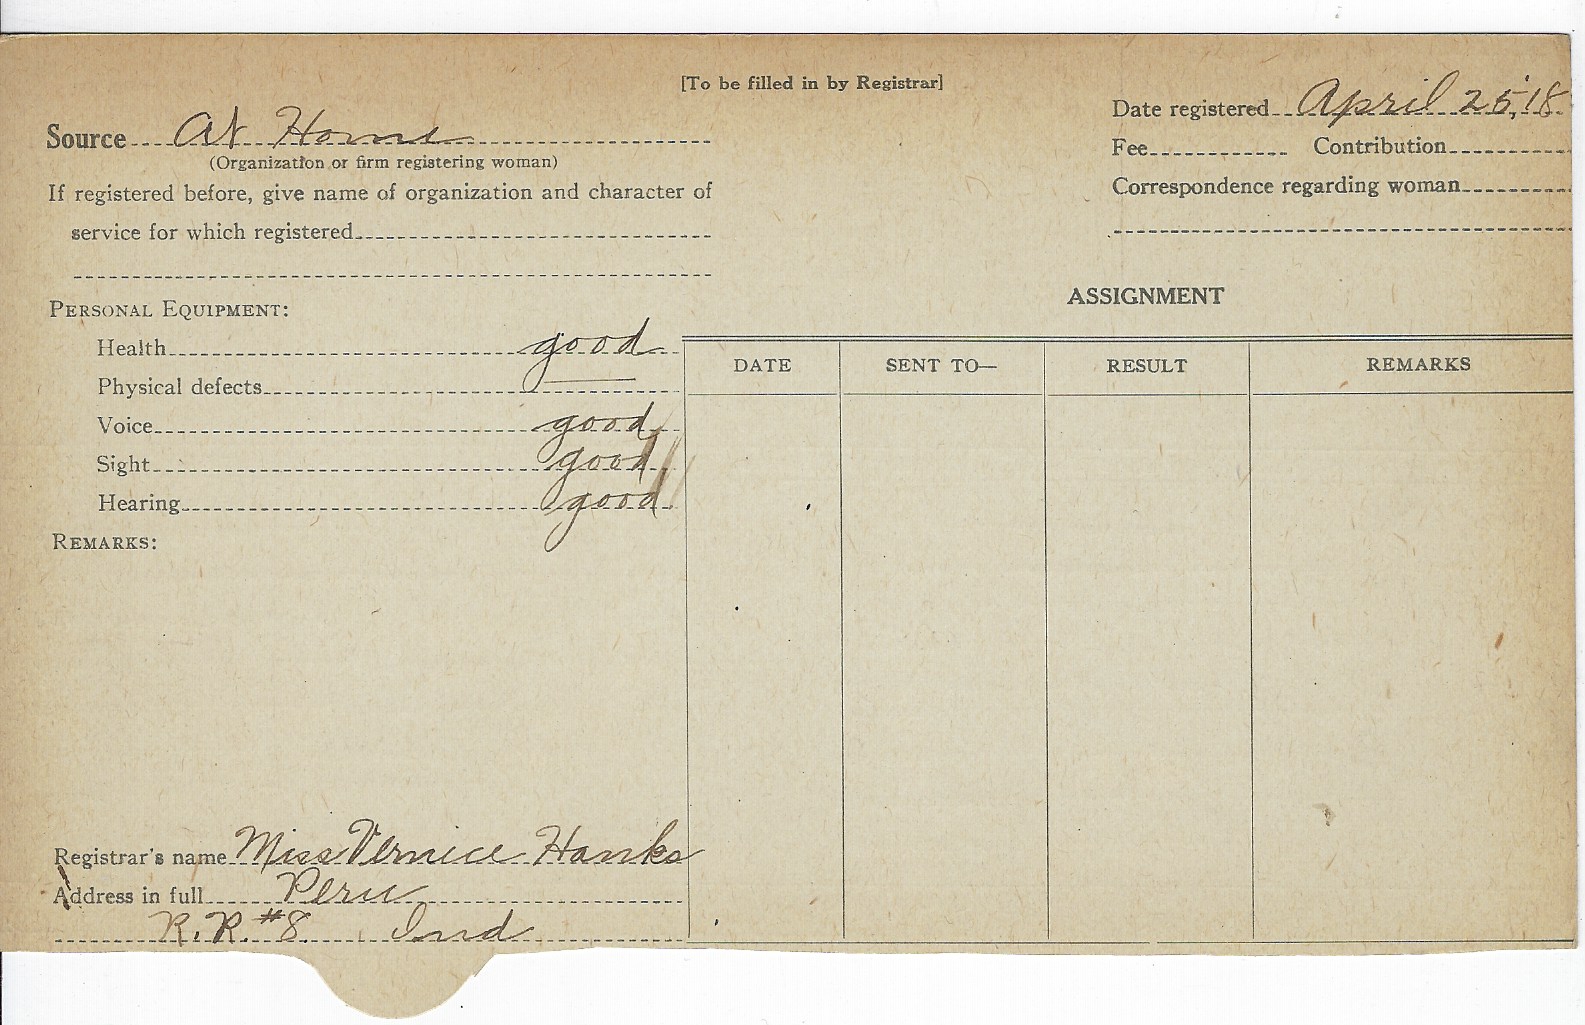 [To be filled in by Registrar]
Source At Home
(Organization or firm registering woman)
If registered before, give name of organization and character of
service for which registered
Date registered April 25, '18
Fee Contribution
Correspondence regarding woman
PERSONAL EQUIPMENT:
Health good
Physical defects —
Voice good
Sight good
Hearing good
REMARKS:
ASSIGNMENT
DATE SENT TO— RESULT REMARKS
Registrar's name Miss Vernice Hanks
Address in full Peru
R.R. #8 Ind